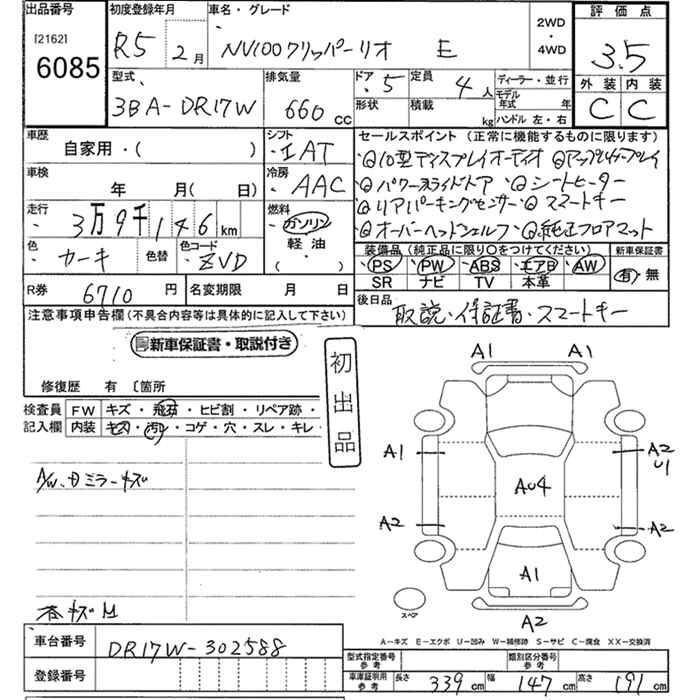 出品番号
[2162]
6085
初度登録年月
R5 2月
車名・グレード
NV100クリッパーリオ E
2WD
・
4WD
評価点
3.5
外装 内装
C C
型式
3BA-DR17W
排気量
660 cc
ドア 5
形状
定員 4人
積載 kg
ディーラー・並行
モデル年式 年
ハンドル 左・右
車歴
自家用・( )
シフト
IAT
車検
年 月( 日)
冷房
AAC
走行
3万9千146km
燃料
ガソリン
軽油
・( )
色
カーキ
色替
色コード
ZVD
R券 6710円
名変期限 月 日
セールスポイント(正常に機能するものに限ります)
◎10型ディスプレイオーディオ ◎アップルカープレイ
◎パワースライドドア ◎シートヒーター
◎リアパーキングセンサー ◎スマートキー
◎オーバーヘッドシェルフ ◎純正フロアマット
装備品(純正品に限り○をつけてください)
PS・PW・ABS・エアB・AW
SR ナビ TV 本革
新車保証書
有・無
後日品
取説・保証書・スマートキー
注意事項申告欄(不具合内容等は具体的に記入して下さい)
新車保証書・取説付き
修復歴 有 〔箇所
初出品
検査員記入欄
FW キズ・飛石・ヒビ割・リペア跡・
内装 キズ・汚レ・コゲ・穴・スレ・キレ・
A/W、ミラーキズ
キズM
A1 A1
A1 A2 U1
AU4
A2 A2
A1
A2
スペア
A-キズ E-エクボ U-凹み W-補修跡 S-サビ C-腐食 XX-交換済
車台番号 DR17W-302588
登録番号
型式指定番号 参考
類別区分番号 参考
車庫証明用 参考 長さ 339cm 幅 147cm 高さ 191cm